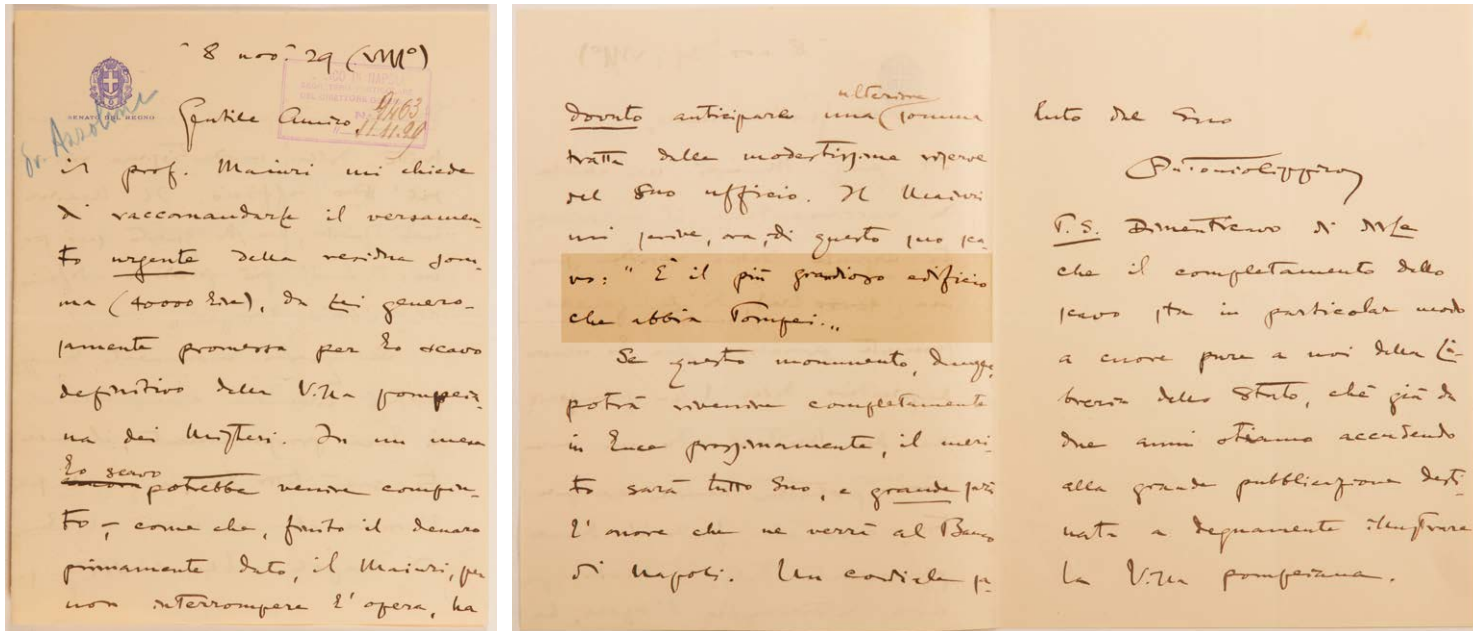 8 nov. 29 (VIII°)
SENATO DEL REGNO
BANCO DI NAPOLI
9463
11.11.29
Gentile Amico
il prof. Maiuri mi chiede
di raccomandarLe il versamen-
to urgente della residua som-
ma (40000 lire), da Lei genero-
samente promessa per lo scavo
definitivo della Villa pompeia-
na dei Misteri. In un mese
lo scavo
potrebbe venire compiu-
to, come che, finito il denaro
primamente dato, il Maiuri, per
non interrompere l'opera, ha
dovuto anticipare una ulteriore somma
tratta dalle modestissime riserve
del Suo ufficio. Il Maiuri
mi scrive, ora, di questo suo sca-
vo: "È il più grandioso edificio
che abbia Pompei."
Se questo monumento, dunque,
potrà rivenire completamente
in luce prossimamente, il meri-
to sarà tutto Suo, e grande sarà
l'onore che ne verrà al Banco
di Napoli. Un cordiale sa-
luto dal Suo
P.S. Dimenticavo di dirLe
che il completamento dello
scavo sta in particolar modo
a cuore pure a noi della Li-
breria dello Stato, chè già da
due anni stiamo accudendo
alla grande pubblicazione desti-
nata a degnamente illustrare
la Villa pompeiana.